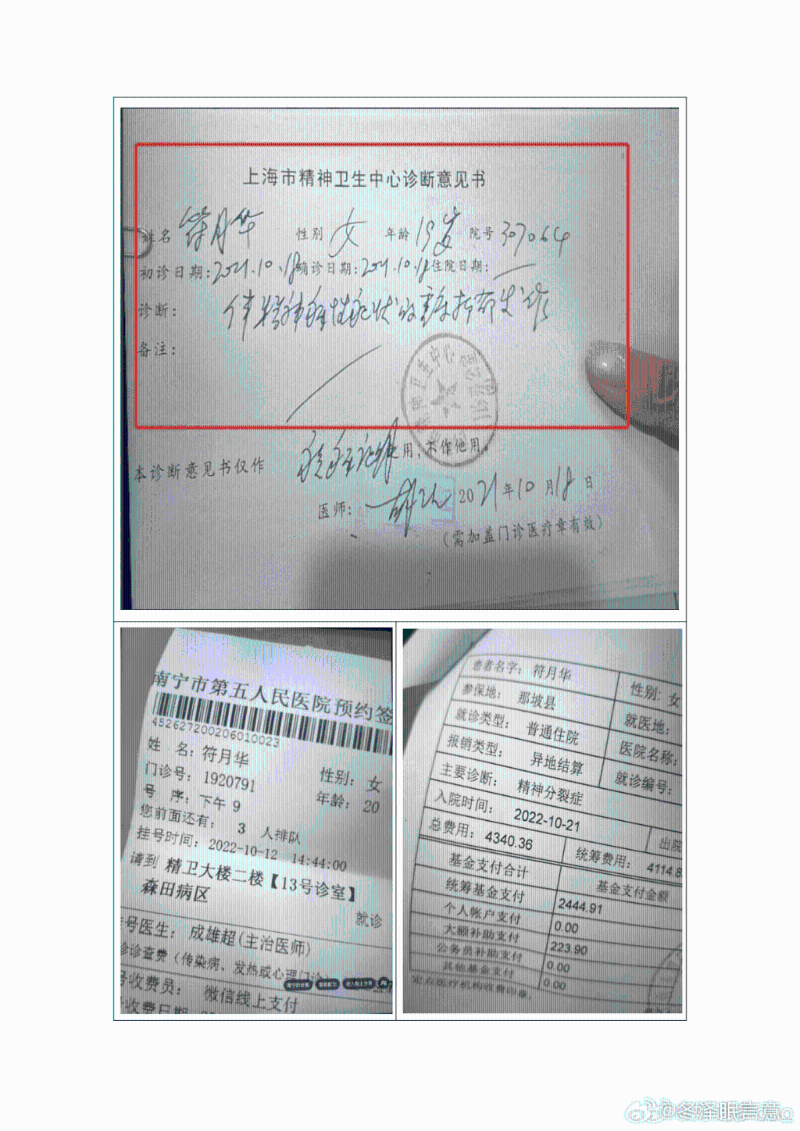 上海市精神卫生中心诊断意见书
姓名 符月华 性别 女 年龄 19岁 院号 307064
初诊日期:2021.10.18 确诊日期:2021.10.18 住院日期:
诊断: 伴精神病性症状的重度抑郁发作
备注:
本诊断意见书仅作 用,不作他用。
医师: 2021年10月18日
(需加盖门诊医疗章有效)
南宁市第五人民医院预约签
452627200206010023
姓 名:符月华 性别:女
门诊号:1920791 年龄:20
号 序:下午 9
您前面还有: 3 人排队
挂号时间:2022-10-12 14:44:00
请到 精卫大楼二楼【13号诊室】
森田病区 就诊
号医生:成雄超(主治医师)
诊诊查费(传染病、发热或心理门诊)
号收费员: 微信线上支付
收费日期
患者名字: 符月华 性别:女
参保地: 那坡县 就医地:
就诊类型: 普通住院 医院名称:
报销类型: 异地结算 就诊编号:
主要诊断: 精神分裂症
入院时间: 2022-10-21 出院
总费用: 4340.36 统筹费用: 4114.8
基金支付合计 基金支付金额
统筹基金支付 2444.91
个人帐户支付 0.00
大额补助支付 223.90
公务员补助支付 0.00
其他基金支付 0.00
定点医疗机构收费印章: